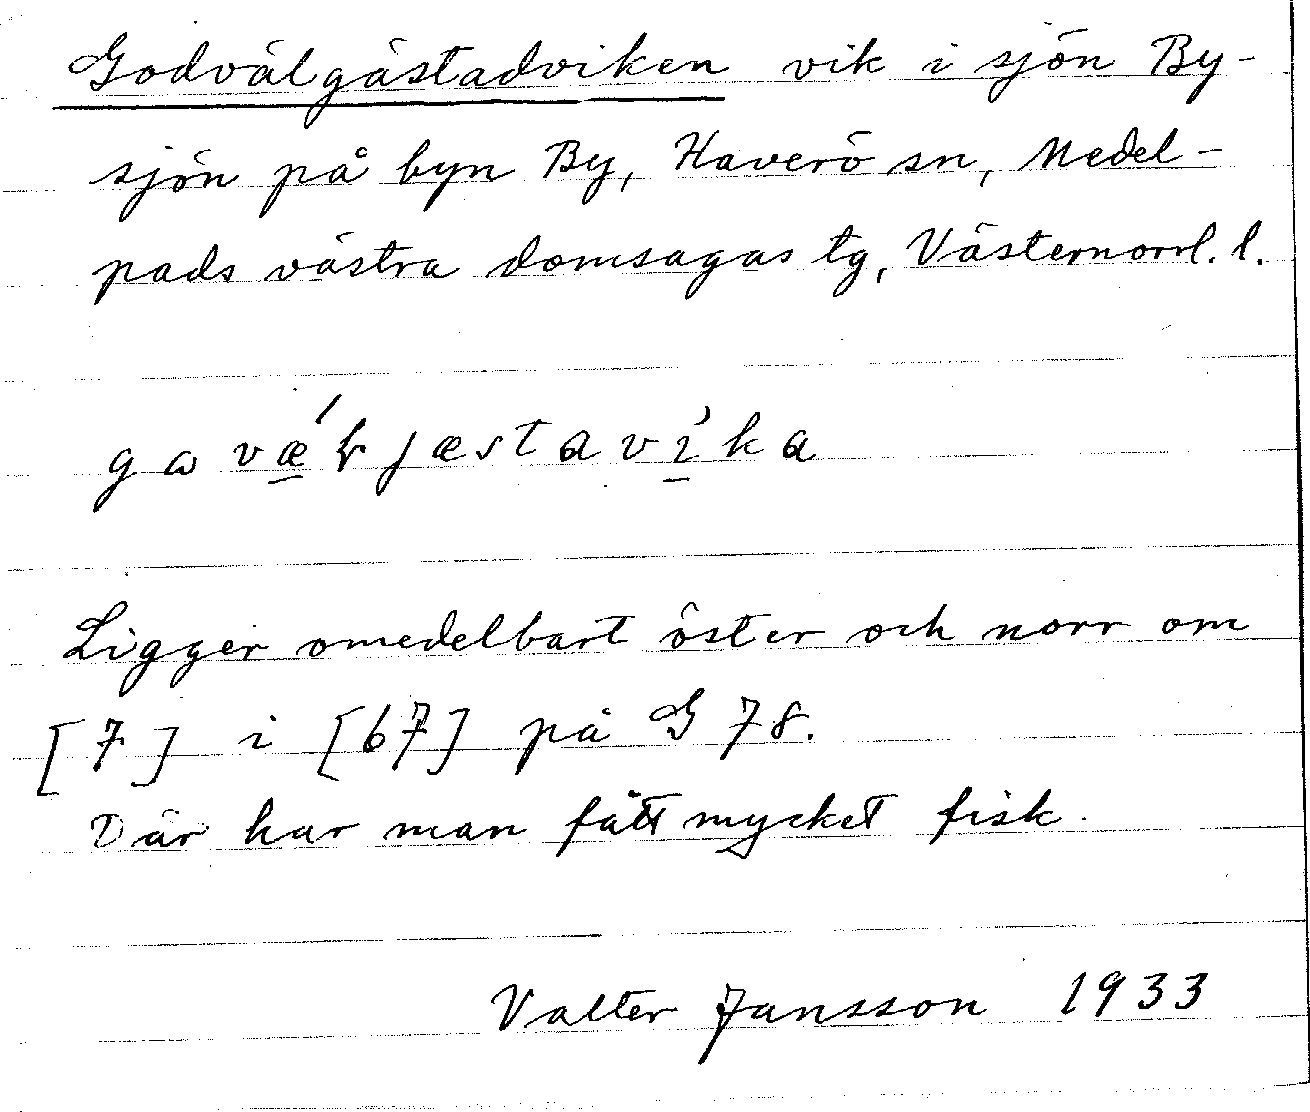 Godvälgästadviken vik i sjön By-
sjön på byn By, Haverö sn, Medel-
pads västra domsagas tg, Västernorrl. l.
Ligger omedelbart öster och norr om
[7] i [67] på G 78.
Där har man fått mycket fisk.
Valter Jansson 1933